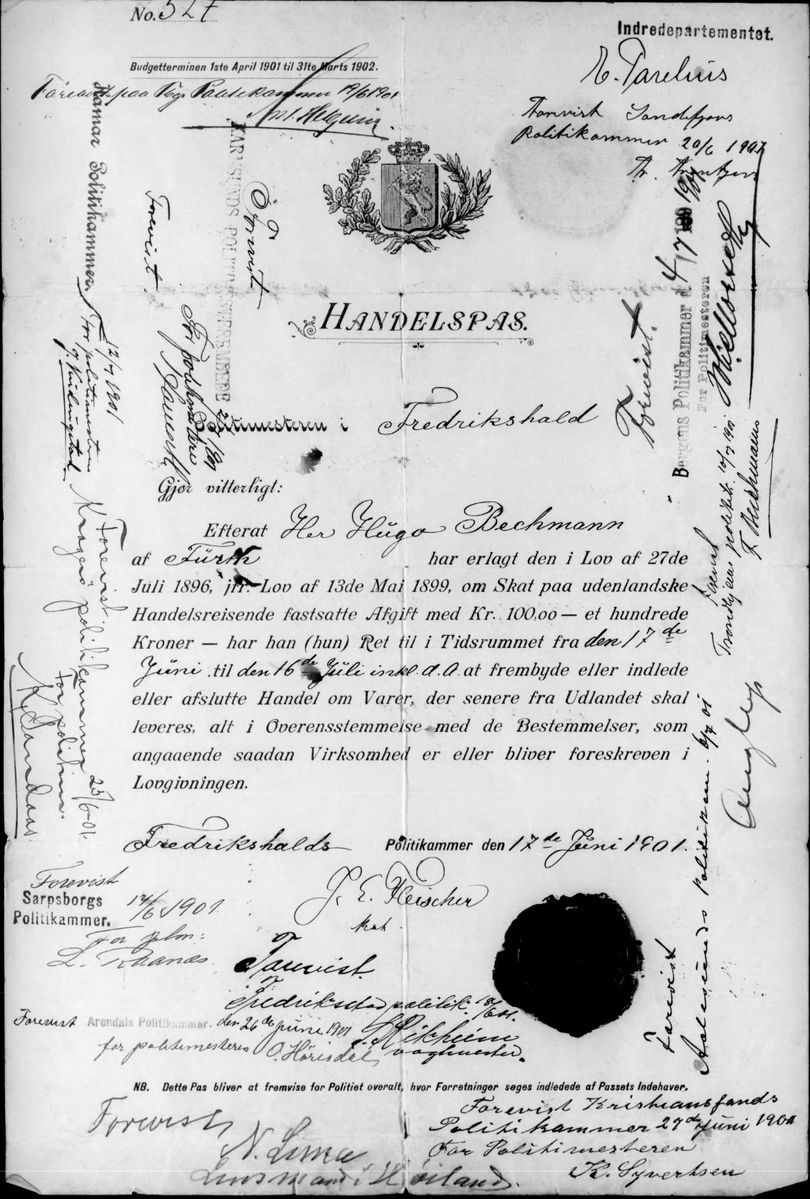 No. 527
Indredepartementet.
Budgetterminen 1ste April 1901 til 31te Marts 1902.
Forevist paa Politikammer 19/6 1901
E. Parelius
Forevist Sandefjords
Politikammer 20/6 1901
HANDELSPAS.
Politimesteren i Fredrikshald
Gjør vitterligt:
Efterat Her Hugo Bechmann
af Fürth har erlagt den i Lov af 27de
Juli 1896, jfr. Lov af 13de Mai 1899, om Skat paa udenlandske
Handelsreisende fastsatte Afgift med Kr. 100,00 — et hundrede
Kroner — har han (hun) Ret til i Tidsrummet fra den 17de
Juni til den 16de Juli inkl. d.A. at frembyde eller indlede
eller afslutte Handel om Varer, der senere fra Udlandet skal
leveres, alt i Overensstemmelse med de Bestemmelser, som
angaaende saadan Virksomhed er eller bliver foreskreven i
Lovgivningen.
Fredrikshalds Politikammer den 17de Juni 1901.
J. E. Fleischer
Forevist
Sarpsborgs
Politikammer. 1901
Forevist.
Fredrikstad politik.
Forevist Arendals Politikammer. den 26de Juni 1901
for politimesteren
vagtmester.
NB. Dette Pas bliver at fremvise for Politiet overalt, hvor Forretninger søges indledede af Passets Indehaver.
Forevist
N. Lima
Lensmand i Høiland.
Forevist Kristiansands
Politikammer 27de Juni 1901
For Politimesteren
K. Syvertsen
Hamar Politikammer
12/7 1901
For politimesteren
Forevist.
Forevist
For politimesteren
Forevist.
Kragerø politikammer 25/6-01.
For politim.
K. Sandaas
Forevist. 4/7 1901
Bergens Politikammer d.
For Politimesteren
Forevist
Trondhjems politik. 10/7 1901
H. Bechmann
Forevist
Aalesunds politikam. 6/7 01